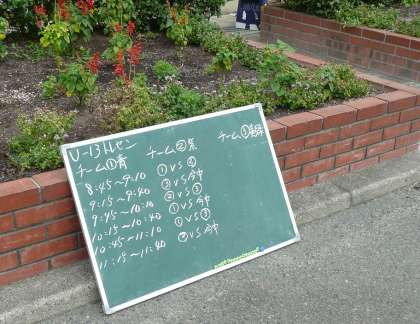 U-13トレセン
チーム①青 チーム②紫 チーム③
8:45~9:10 ① VS ②
9:15~9:40 ③ VS 府中
9:45~10:10 ② VS ③
10:15~10:40 ① VS 府中
10:45~11:10 ① VS ③
11:15~11:40 ② VS 府中